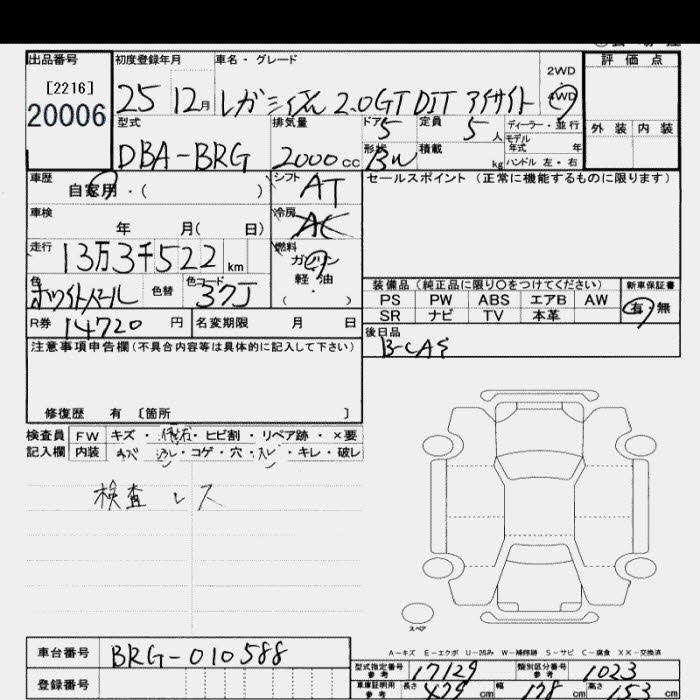 出品番号 初度登録年月 車名・グレード 評価点
[2216]
20006
25 12月 レガシィ 2.0GT DIT アイサイト
2WD
4WD
型式 排気量 ドア 定員 ディーラー・並行 外装 内装
DBA-BRG 2000cc 5 5人 モデル年式 年
形状 積載 kg ハンドル 左・右
車歴 シフト セールスポイント (正常に機能するものに限ります)
自家用・( ) AT
車検 冷房
年 月( 日) AC
走行 燃料
13万3千522km ガソリン
軽油
( )
色 色替 色コード
ホワイトパール 37J
装備品 (純正品に限り○をつけてください) 新車保証書
PS PW ABS エアB AW 有・無
SR ナビ TV 本革
R券 14720円 名変期限 月 日 後日品
B-CAS
注意事項申告欄(不具合内容等は具体的に記入して下さい)
修復歴 有 〔箇所 〕
検査員 FW キズ・ ・ヒビ割・リペア跡・×要
記入欄 内装 キズ ・コゲ・穴・ ・キレ・破レ
検査レス
スペア
A-キズ E-エクボ U-凹み W-補修跡 S-サビ C-腐食 XX-交換済
車台番号 BRG-010588
型式指定番号 参考 17129 類別区分番号 参考 1023
登録番号
車庫証明用 参考 長さ 479cm 幅 178cm 高さ 153cm